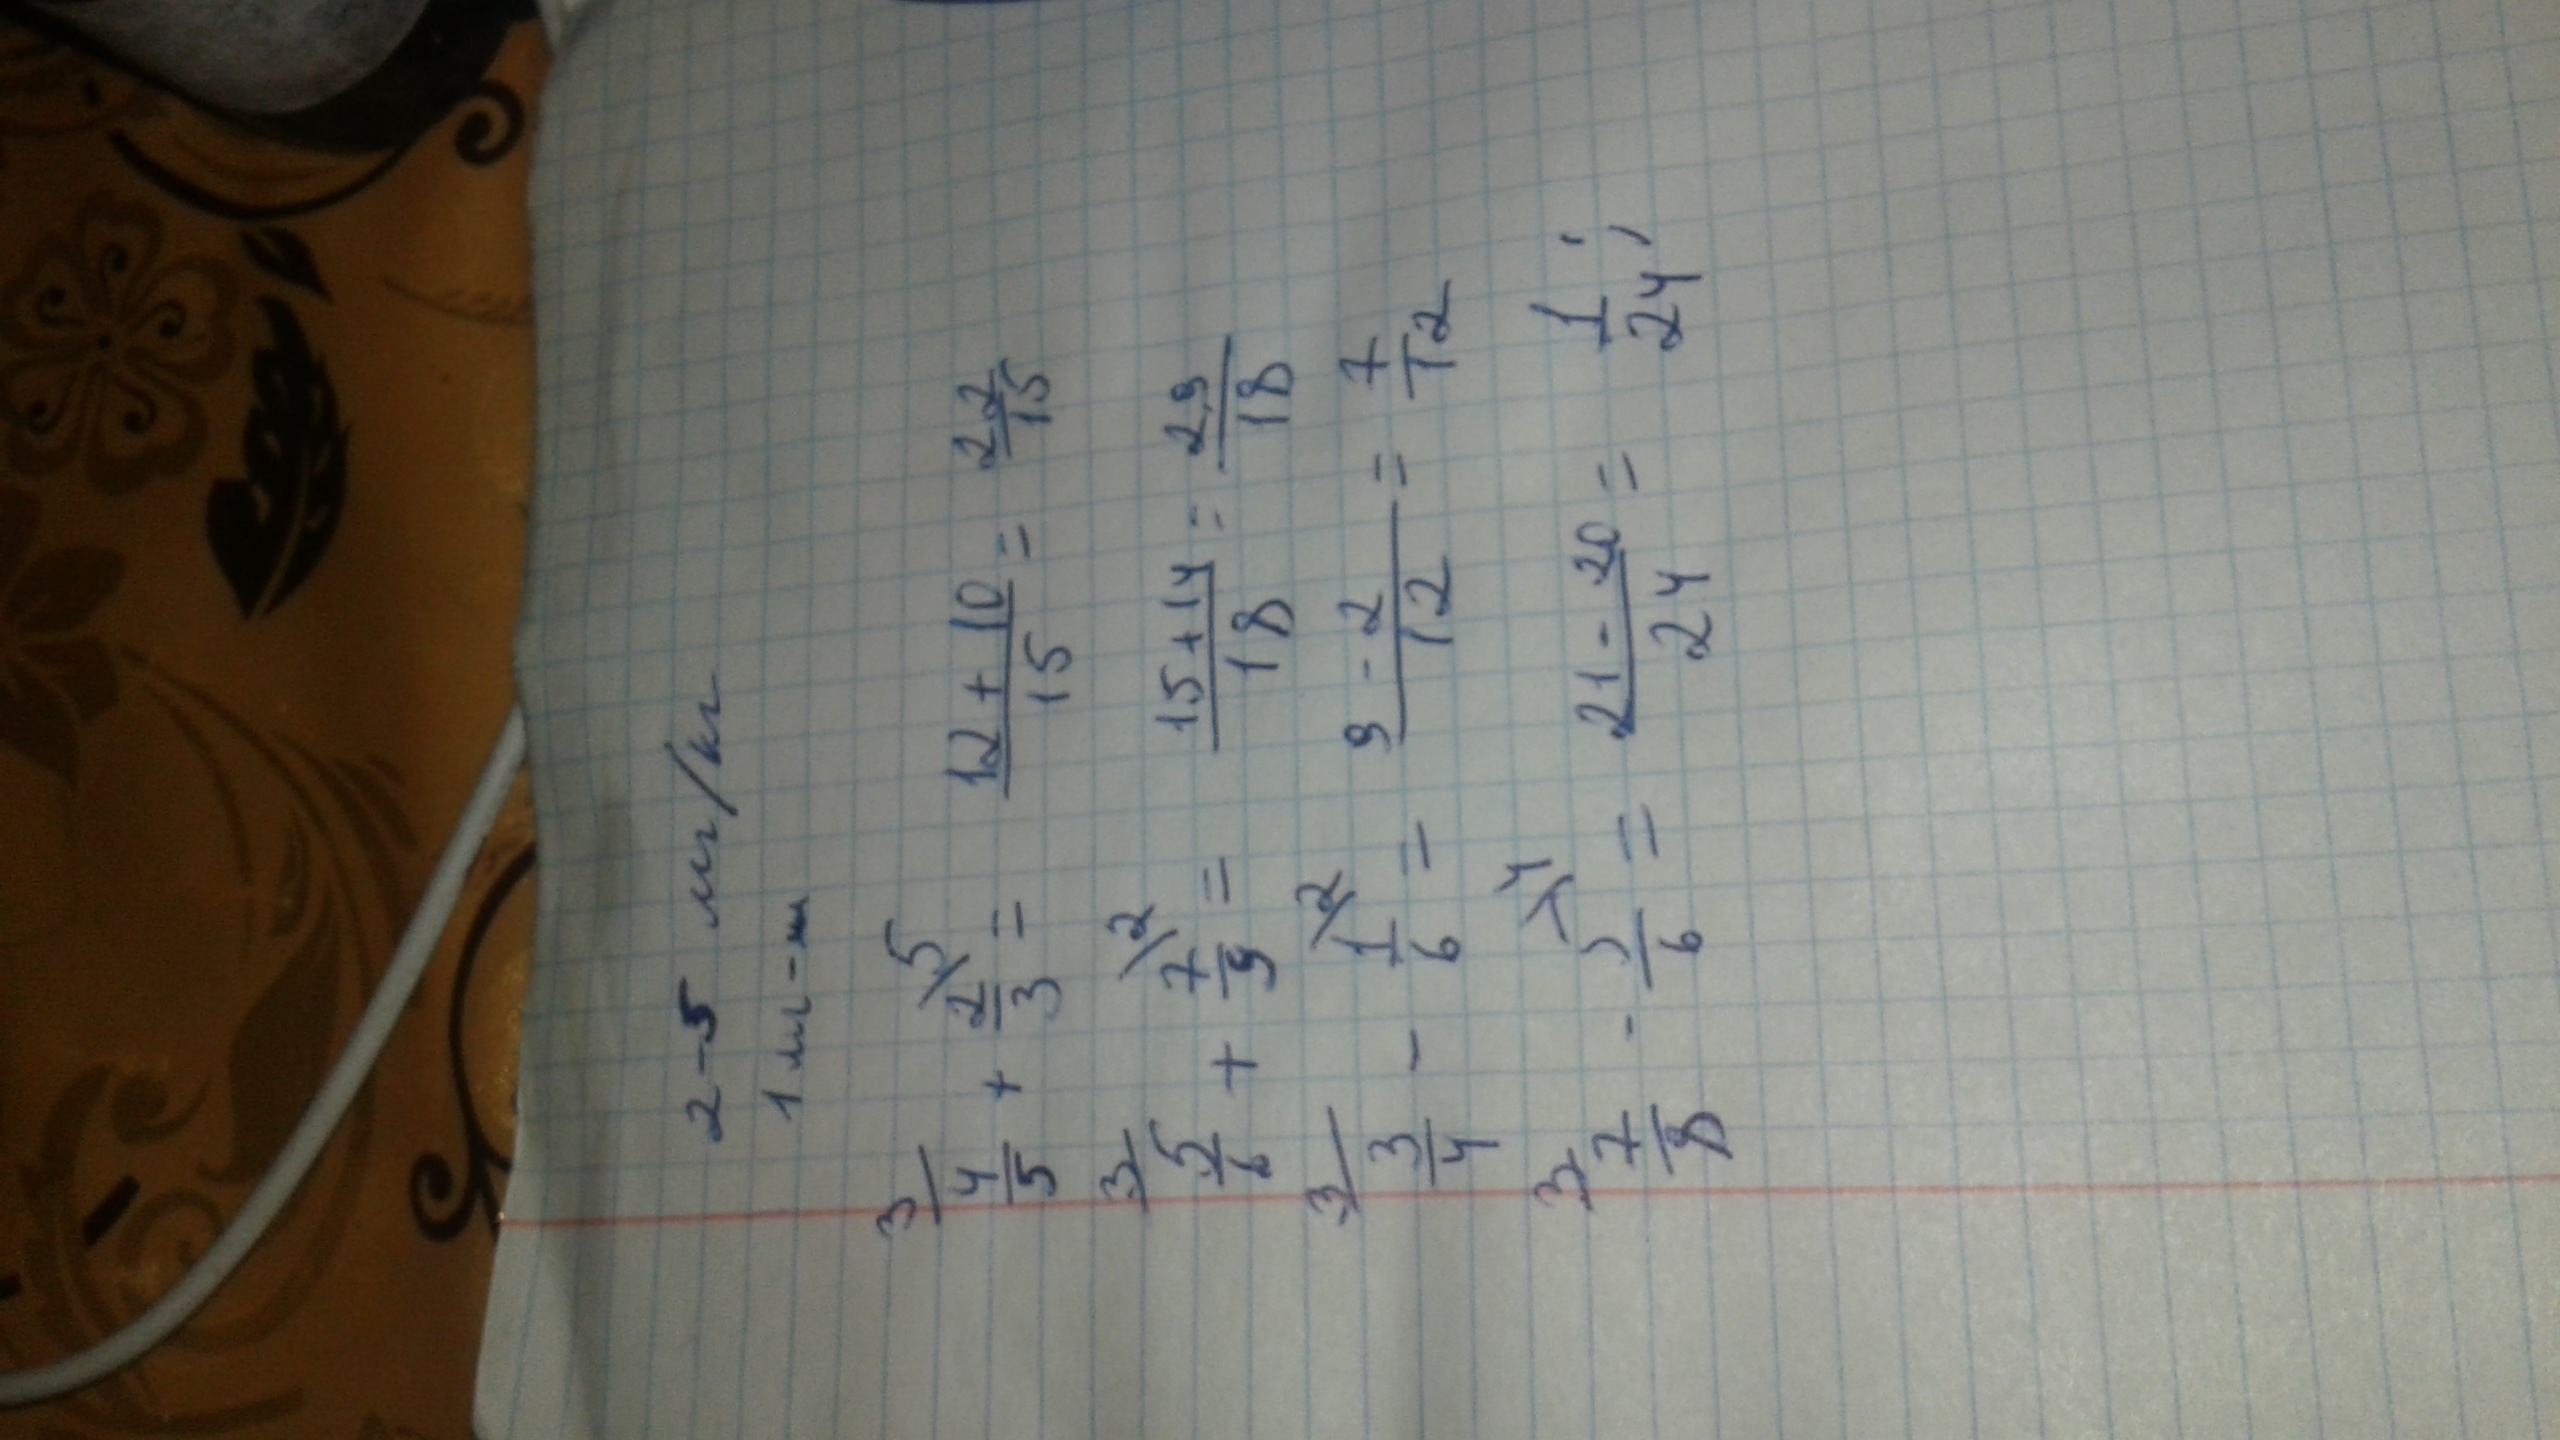 2-5 мг/кг
1 мг -
3/ 4/5 + 2/3 \5 = (12 + 10)/15 = 22/15
3/ 5/6 + 7/9 \2 = (15 + 14)/18 = 29/18
3/ 3/4 - 1/6 \2 = (9 - 2)/12 = 7/12
3/ 7/8 - 5/6 \4 = (21 - 20)/24 = 1/24;